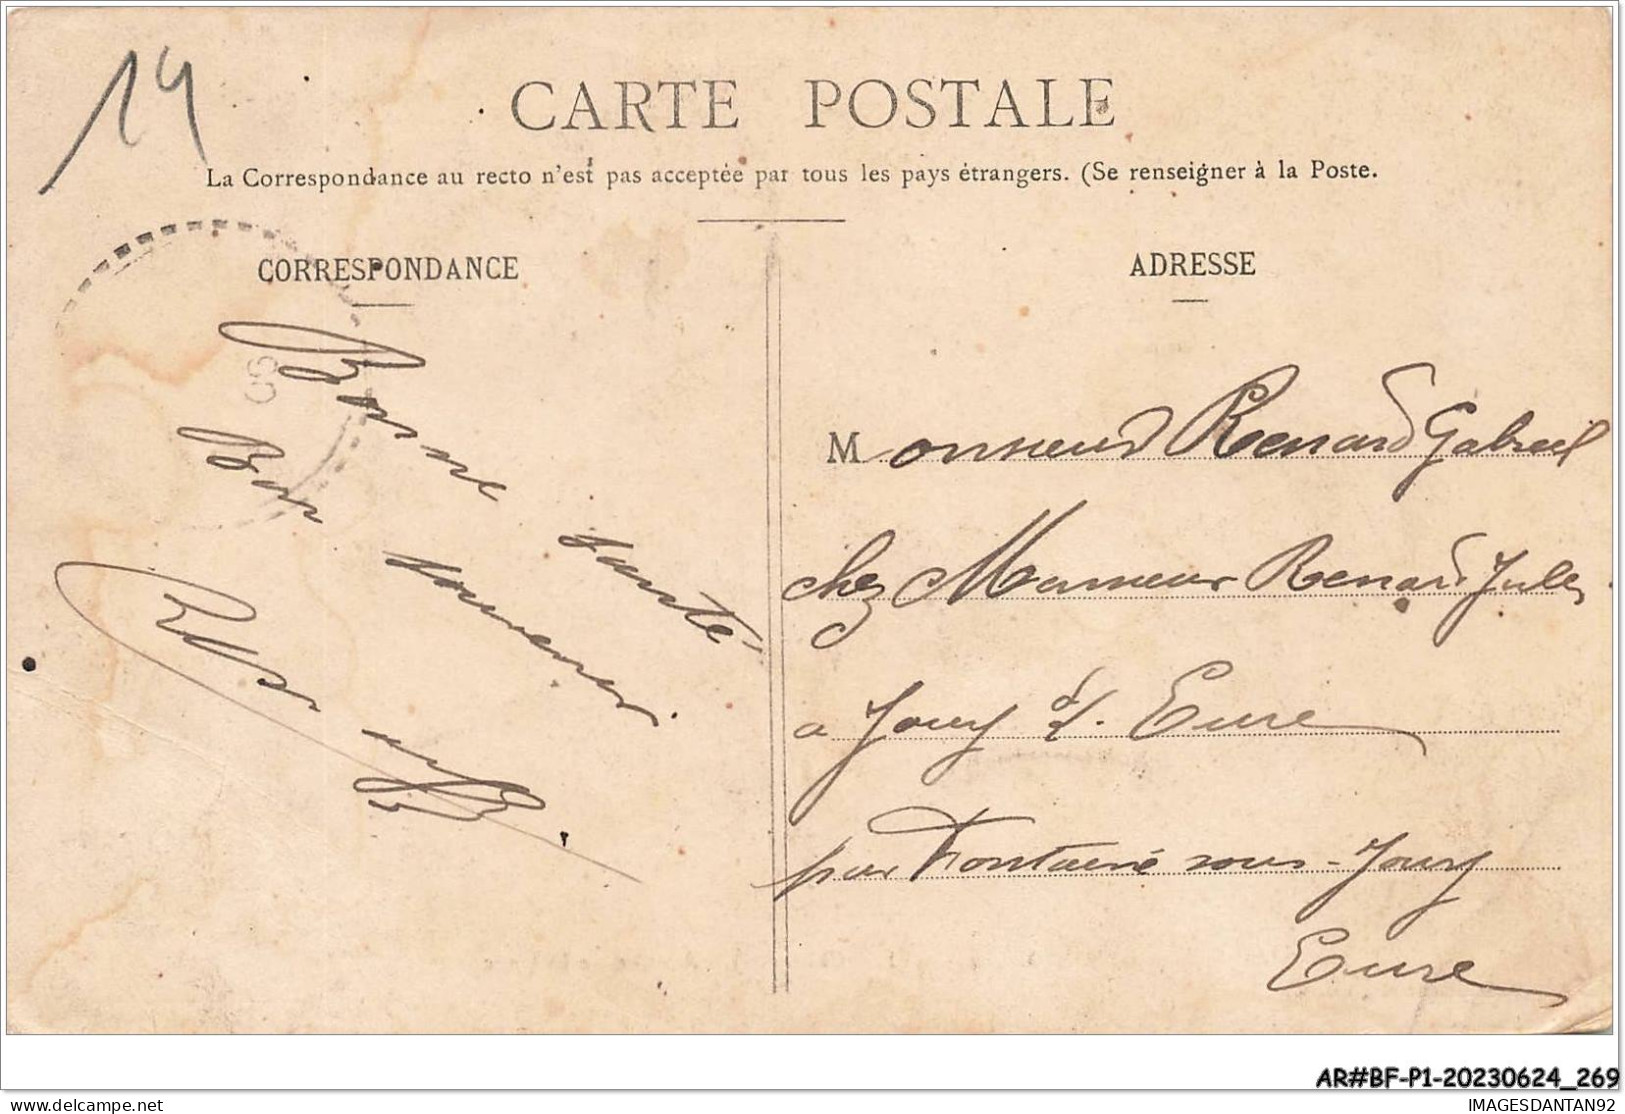 14
CARTE POSTALE
La Correspondance au recto n'est pas acceptée par tous les pays étrangers. (Se renseigner à la Poste.
CORRESPONDANCE
ADRESSE
Bonne santé
Bon souvenir
Monsieur Renard Gabriel
chez Monsieur Renard Jules
a Jouy s/. Eure
par Fontaine sous-Jouy
Eure
AR#BF-P1-20230624_269
delcampe.net
IMAGESDANTAN92